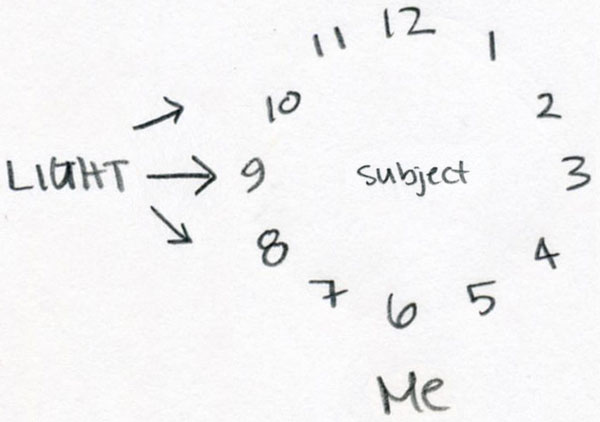 12
11
1
10
2
LIGHT
9
subject
3
8
4
7
5
6
Me